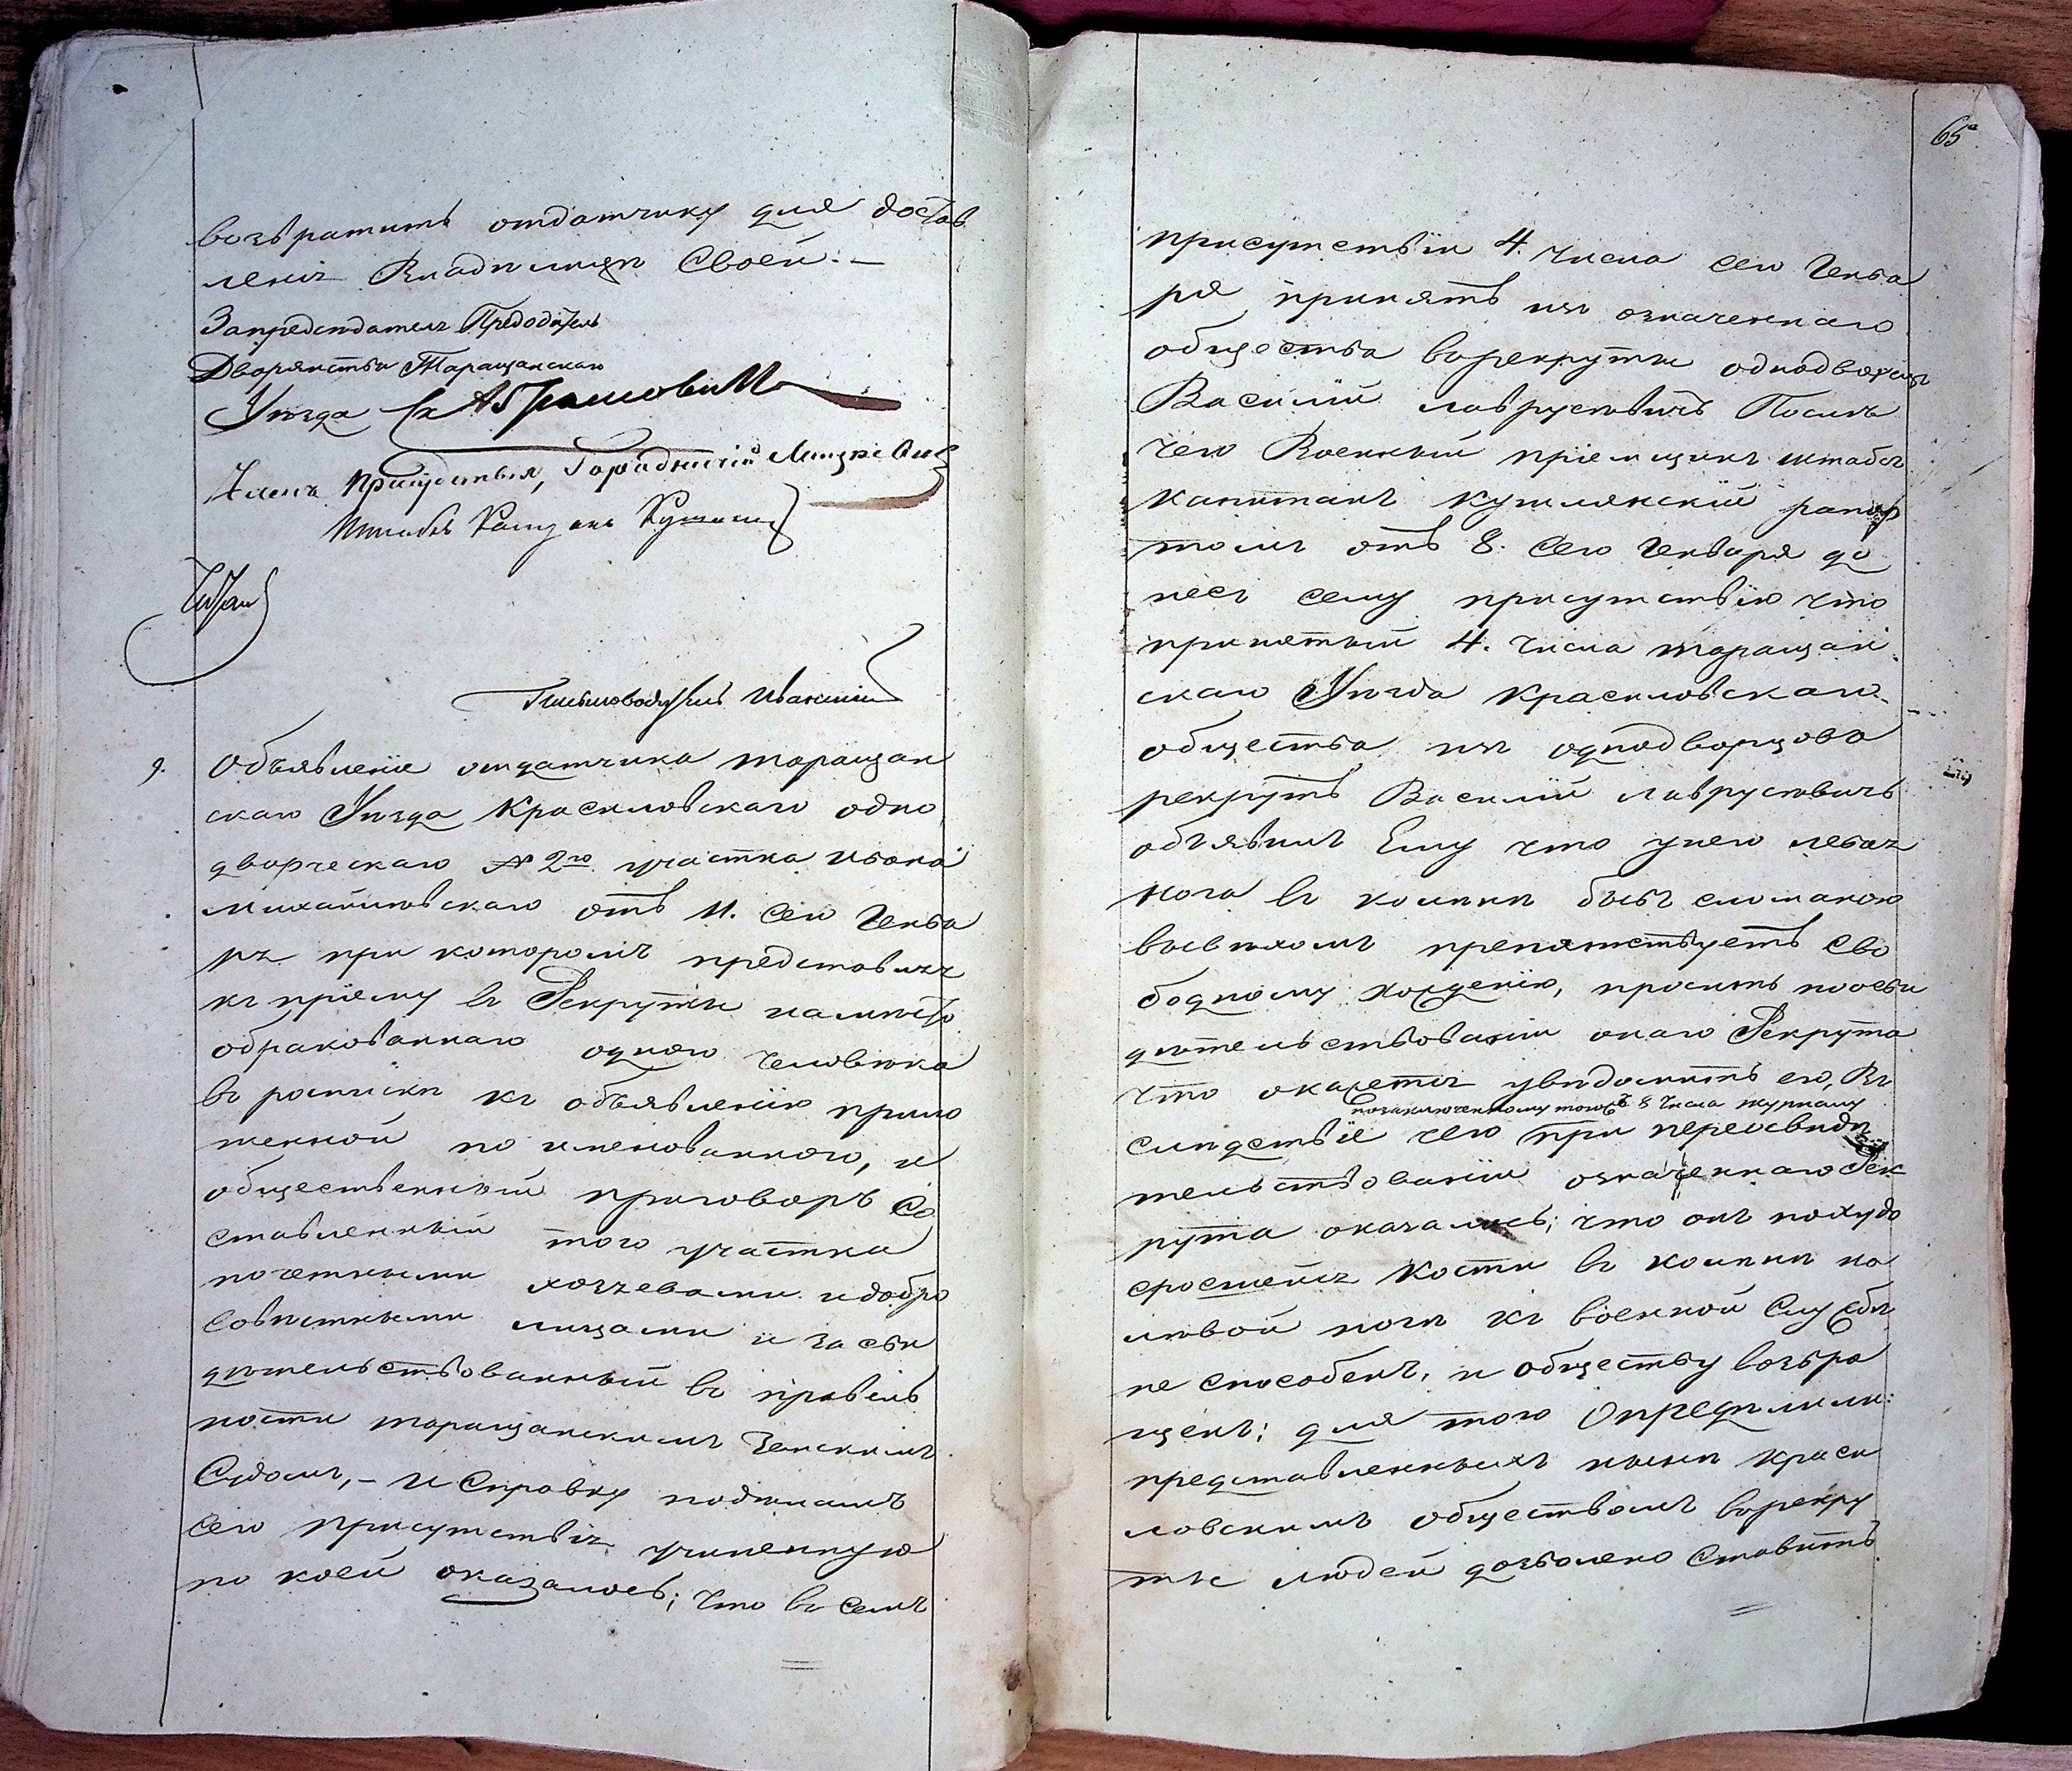 возвратить отдатчику для достав
ленія Владѣлицѣ Своей. —
Запредсѣдателя Предводитель
Дворянства Таращанскаго
Уѣзда Абрамовичь
Членъ присудствія, Городничій
Штабсъ Капитанъ
Письмоводитель Иваницкій
9. Объявленіе отдатчика таращан
скаго Уѣзда Красиловскаго одно
дворческаго № 2го участка ивана
михайловскаго отъ 11. Сего Генва
ря при которомъ представляя
къ пріему въ Рекруты намѣсто
обракованнаго одного человѣка
въ росписки къ объявленію прило
женной по именованнаго, и
общественный приговоръ Со
ставленный того участка
почетными хозяевами и добро
совѣстными лицами и засви
дѣтельствованный въ правиль
ности таращанскимъ Земскимъ
Судомъ, – и Справку подѣламъ
сего присутствія учиненную
по коей оказалось; что въ Семъ
65
присутствіи 4. числа сего Генва
ря принятъ изъ означеннаго
общества врекруты однодворецъ
Василій лаврусевичъ Послѣ
чего Военный пріемщикъ штабсъ
капитанъ кушлянскій рапор
томъ отъ 8. Сего Генваря до
несъ сему присутствію что
принятый 4. Числа таращан
скаго Уѣзда Красиловскаго
общества изъ однодворцовъ
рекрутъ Василій лаврусевичъ
объявилъ Ему что унего левая
нога въ колѣнѣ бывъ сломаною
препятствуетъ сво
бодному хожденію, проситъ поосви
дѣтельствованіи онаго Рекрута
что окажется увѣдомить его, Въ
позаключенному тогожъ 8 Числа журналу
слѣдствіе чего при переосвидѣ
тельствованіи означеннаго Рек
рута оказалось; что онъ похудо
сросшейся Кости въ колѣнѣ на
лѣвой ноги къ военной Службѣ
не способенъ, и обществу возвра
щенъ; для того Опредѣлили:
представленныхъ нынѣ краси
ловскимъ обществомъ врекру
ты людей дозволено Ставить